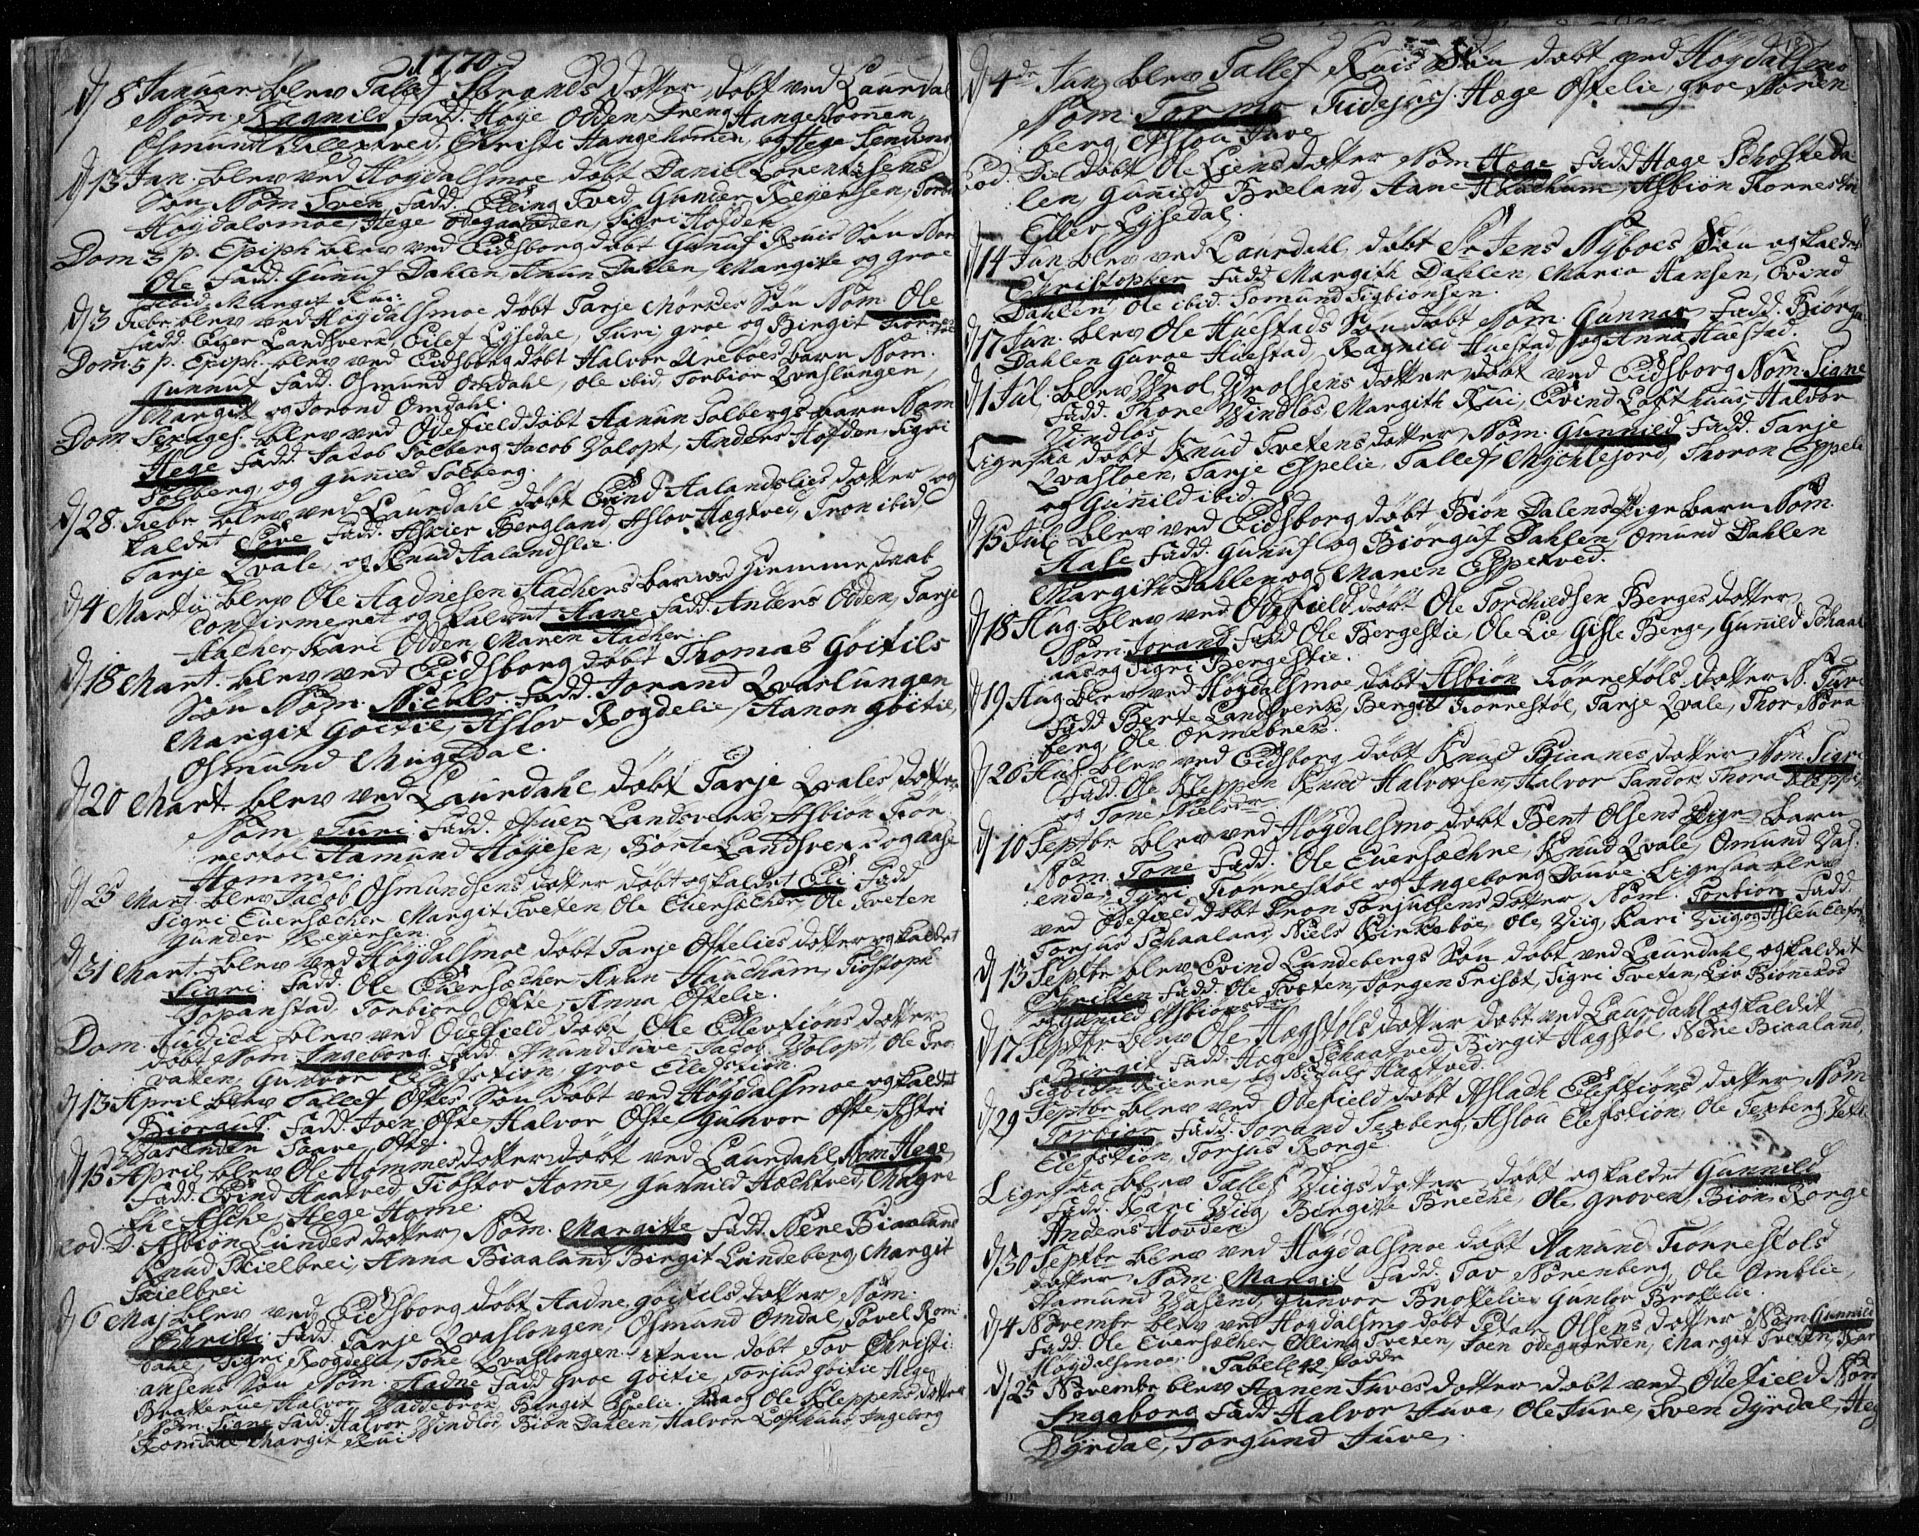 1770
d 8 Januar blev Tallef Sbrands dotter døbt ved Laurdal
Nom. Ragnild Fadd. Høye Odden, Dreng Haugehomen,
Osmund Lilletved, Christi Haugehomen, og Hege
d 13 Jan. blev ved Høgdalsmoe døbt Daniel Lorentzsens
Søn Nom. Sven Fadd. Elling Tved, Gunder Reyersen, Torb
Høgdalsmoe, Hege Odegaarden, Sigri Hofden
Dom 3 p. Epiph blev ved Eidsborg døbt Gunuf Ruis Søn Nom
Ole Fadd. Gunuf Dahlen, Anun Dahlen, Margitte og groe
ibid, Margit Rui.
d 3 Febr. blev ved Høgdalsmoe døbt Tarje Mørkes Søn Nom. Ole
Fadd. Ever Landsverk, Eilef Lysedal, Turi groe og Birgit
Dom. 5 p. Epiph. blev ved Eidsborg døbt Halvor Ureboes barn Nom.
Gunnuf Fadd. Osmund Omdahl, Ole ibid, Torbiør Qvaslungen,
Margit og Jorond Omdahl.
Dom Sexages. blev ved Odefield døbt Aanun Solbergs barn Nom
Hege Fadd. Jacob Solberg, Jacob Volopt, Anders Hofden, Sigri
Solberg, og Gunild Solberg.
d 28. Febr. blev ved Laurdahl døbt Evind Aalandslies dotter og
kaldet Sive Fadd. Asier Bergland, Aslov Hægtved, Tron ibid,
Tarje Qvale, og Knud Aalandslie.
d 4 Martij blev Ole Aadnesen Aachers barns hiemmedaab
confirmeret og kaldet Aane Fadd. Anders Odden, Tarje
Aacher, Kari Odden, Maren Aacher.
d 18 Mart. blev ved Eidsborg døbt Thomas Gøitils
Søn Nom. Niculs. Fadd. Jorand Qvaslungen
Margit Goitil, Aslov Rogdelie, Aanon Gøitil,
Osmund Mugedal.
d 20 Mart blev ved Laurdahl døbt Tarje Qvales dotter
Nom Turi Fadd. Afuer Landsverk, Asbiøn Tior
restøl, Aamund Høyesen, Børte Landsverk og Aase
Homme.
d 25 Mart. blev Jacob Osmundsens dotter døbt og kaldet Eli Fadd
Sigri Eversæcher, Margit Tveten, Ole Eversæcher, Ole Tveten
Gunder Reyersen.
d 31 Mart. blev ved Høgdalsmoe døbt Tarje Oftelies dotter og kaldet
Sigri Fadd. Ole Eversæcher, Anun Hauchum, Tiostolph
Trpanstad, Torbiør Ofte, Anna Oftelie.
Dom Judica blev ved Odefield døbt Ole Ellevstiøns dotter
døbt Nom. Ingeborg Fadd. Amund Juve, Jacob Volopt, Ole Tro
vatten, Gunvor Ellefstion, groe Ellefstion.
d 13 April blev Tallef Oftes Søn døbt ved Høgdalsmoe og kaldet
Biørguf. Fadd. Joen Ofte, Halvor Ofte, Gunvor Ofte, Astri
Barenden, Torve Ofte.
d 15 April blev Ole Hommes dotter døbt ved Laurdahl Nom Hege
Fadd. Evind Haatved, Tiostor Home, Gunnild Hæchtved, Magre
the Asche, Hege Home.
Eod D Asbion Lundes dotter Nom. Margitte Fadd. Nere Biaaland
Knud Skielbrei, Anna Biaaland, Birgit Lundeberg, Margit
Skielbrei
d 6 Maj blev ved Eidsborg døbt Aadne Goitils dotter Nom.
Christi Fadd. Tarje Qvaslongen, Osmund Omdal, Povel Rom-
dahl, Sigri Rogdelie, Tone Qvaslongen. item døbt Tov Christi-
ansens Søn Nom. Aadne Fadd groe Goitil, Torjus Goitil, Aase
Bratterue, Halvor Vaddebrok, Birgit Espelie. Ole Kleppens dotter
Nom. Signe Fadd. Halvor Vindlos, Biøn Dahlen, Halvor Lofthuus, Ingeborg
Romdahl, Margit Rui
d 4de Jun blev Tallef Ruis Søn døbt ved Høgdalsmo
Nom. Tormo Fidejuss. Hæge Oftelie, groe Noren
berg, Aslou Juve
Eod. Die døbt Ole Liens dotter Nom Hæge Fadd Hæge Scholteda
len, Gunild Breland, Aane Hauchum, Asbiøn Tiorrestøl
Ellev Lysedal.
d 14 Jun. blev ved Laurdahl døbt Sr Jens Nyboes Søn og kaldet
Christopher Fadd. Margith Dahlen, Maria Hansen, Evind
Dahlen, Ole ibid. Tomund Sigbiønsen.
d 17 Jun. blev Ole Huestads Søn døbt Nom. Gunnar Fadd. Biørgu
Dahlen, Guroe Huestad, Ragnild Huestad, og Anna Huestad.
d 1 Jul. blev Wrol Wrolsens dotter døbt ved Eidsborg Nom. Signe
Fadd. Thore Vindlos, Margith Rui, Evind Lofthuus, Halvor
Vindlos.
Ligesaa døbt Knud Tvetens dotter Nom. Gunnild Fadd. Tarje
Qvasloen, Tarje Espelie, Tallef Mychlejord, Thoron Espeli
og Gunnild ibid.
d 15 Jul. blev ved Eidsborg døbt Biøn Dalens Pige barn Nom.
Aase Fadd. Gunuf og Biørguf Dahlen, Omund Dahlen
Margith Dahlen og Maren Eppetved.
d 18 Aug blev ved Odefield døbt Ole Torchildsen Berges dotter
Nom. Jorand Fadd Ole Bergestie, Ole Lie, Gisle Berge, Gunild Schaal
aas og Sigri Bergestie.
d 19 Aug blev ved Høgdalsmoe døbt Asbiøn Tiørrestøls dotter N. Turi
Fadd Berte Landsverk, Bergit Tiorrestøl, Tarje Qvale, Thor Nøra-
berg, Ole Ormebrek.
d 26 Aug blev ved Eidsborg døbt Knud Biaanes dotter Nom. Sigri
Fadd. Ole Kleppen, Knud Halvorsen, Halvor Sandok, Thora Kleppen
og Tone Nielsdr.
d 10 Septbr blev ved Høgdalsmo døbt Bent Olsens Pige barn
Nom. Tone Fadd. Ole Eversæchre, Knud Qvale, Omund Vas-
ende, Tyri Tiørrestøl og Ingeborg Jouve. Ligesaa blev
ved Odefield døbt Tron Torjussens dotter, Nom. Torbiør Fadd.
Torjus Schaalaas, Niels Kirkebøe, Ole Vig, Kari Viig og Aslou Elefst
d 13 Septbr blev Evind Lundebergs Søn døbt ved Laurdahl og kaldet
Christen Fadd. Ole Tveten, Jorgen Trisæt, Sigri Tveten, Liv Bionerod
og Gunild Asbiøns dr
d 17 Septbr blev Ole Hægstøls dotter døbt ved Laurdahl og kaldet
Birgit Fadd. Hæge Schaatved, Birgit Hægstøl, Nere Biaaland,
Sigbiøn Kienne, og Niculs Haatved.
d 29 Septbr blev ved Odefield døbt Aslach Elefstiøns dotter Nom
Torbiør Fadd. Jorand Texberg, Aslou Elefstion, Ole Texberg, Vetl
Elefstion, Torjus Ronge
Ligesaa blev Tallef Viigs dotter døbt og kaldet Gunnild
Fadd. Kari Viig, Bergitte Breche, Ole Groven, Bion Ronge
Anders Hovden
d 30 Septbr blev ved Høgdalsmoe døbt Aanund Tiorrestols
dotter Nom. Margit Fadd. Tov Nørenberg, Ole Omblie,
Aamund Vasend, Gunvor Brottelie, Gunlov Brottelie.
d 4 Novembr blev ved Høgdalsmo døbt Petar Olsens dotter Nom Gunnild
Fadd. Ole Eversæcher, Elling Tveten, Joen Odegaarden, Margit Tveten, Kar
Høgdalsmoe. Tabell 42 fødde
d 25 Novembr blev Aanen Juves dotter døbt ved Odefield Nom
Ingeborg Fadd Halvor Juve, Ole Juve, Sven Dyrdal, Heg
Dyrdal, Torgund Juve.